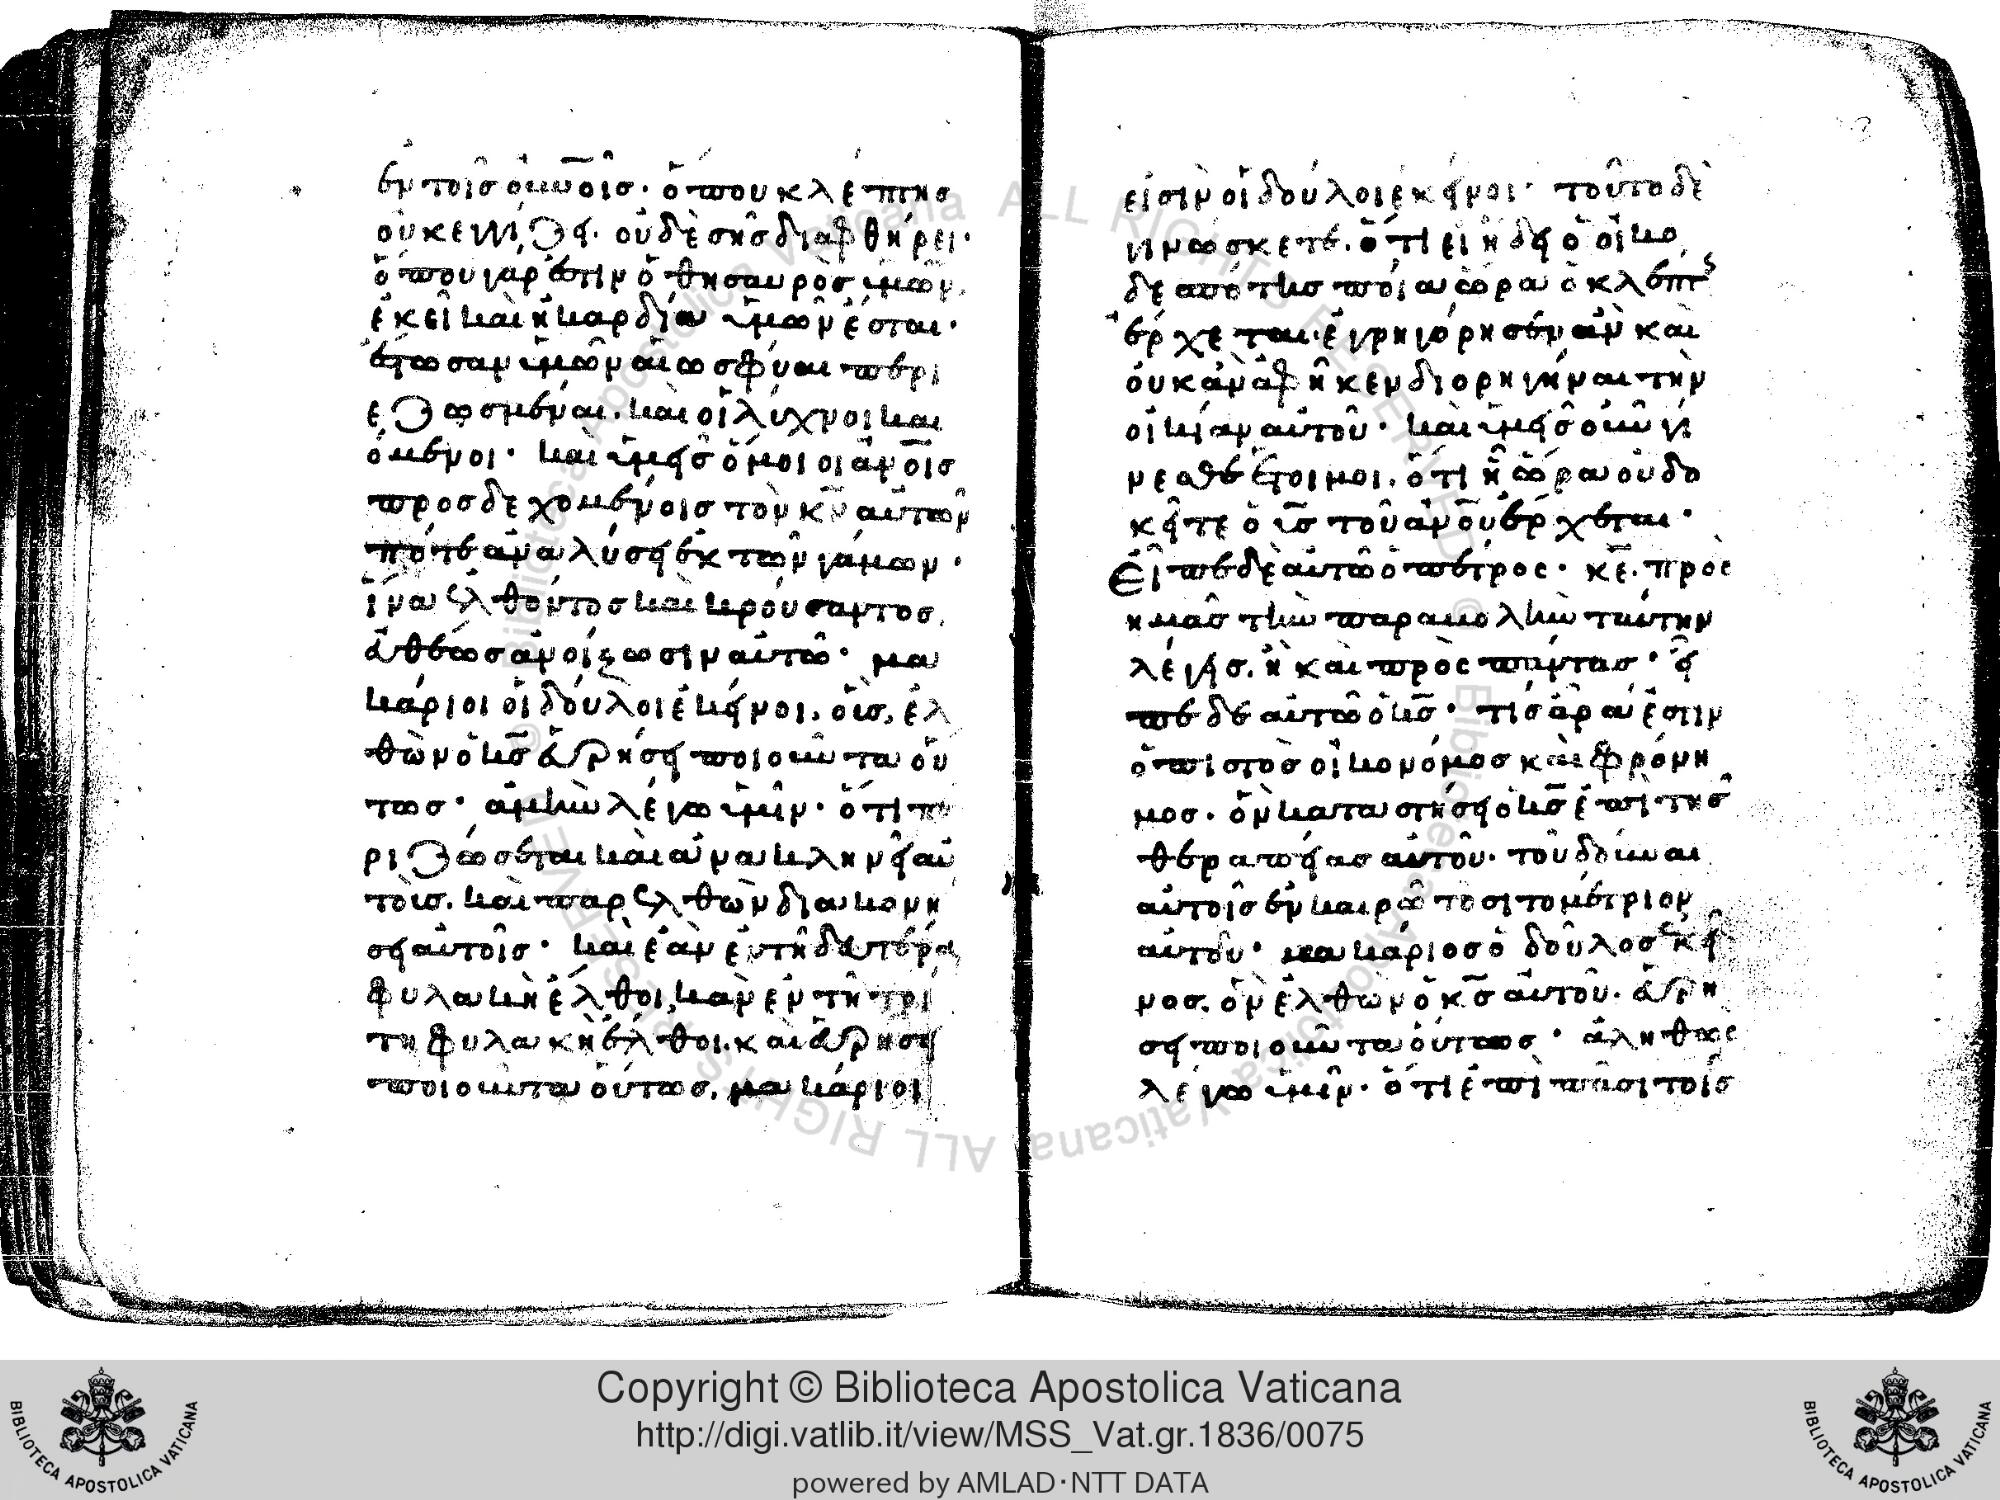 ἐν τοῖς οὐνοῖς· ὅπου κλέπτης
οὐκ ἐγγίζει· οὐδὲ σὴς διαφθήρει·
ὅπου γάρ ἐστιν ὁ θησαυρὸς ὑμῶν,
ἐκεῖ καὶ ἡ καρδία ὑμῶν ἔσται·
ἔστωσαν ὑμῶν αἱ ὠσφύαι περι
εζωσμέναι. καὶ οἱ λύχνοι και
όμενοι· καὶ ὑμεῖς ὅμοιοι ἀνοῖς
προσδεχομένοις τὸν κν αὐτῶν
πότε ἀναλύσει ἐκ τῶν γάμων·
ἵνα ἐλθόντος καὶ κρούσαντος,
εὐθέως ἀνοίξωσιν αὐτῶ· μα
κάριοι οἱ δοῦλοι ἐκεῖνοι. οἷς, ἐλ
θὼν ὁ κς εὑρήσει ποιοῦντα οὕ
τως· ἀμὴν λέγω ὑμῖν· ὅτι πε
ριζώσεται καὶ ἀνακλινεῖ αὐ
τοῖς. καὶ παρελθὼν διακονή
σει αὐτοῖς· καὶ ἐὰν ἐν τῆ δευτέρα
φυλακῆ ἔλθοι, κἂν ἐν τῆ τρί
τη φυλακῆ ἔλθοι. καὶ εὑρήσει
ποιοῦντα οὕτως, μακάριοι
εἰσὶν οἱ δοῦλοι ἐκεῖνοι· τοῦτο δὲ
γινώσκετε. ὅτι εἰ ἤδει ὁ οἰκο
δεσπότης ποία ὥρα ὁ κλέπτς
ἔρχεται. ἐγρηγόρησεν ἂν καὶ
οὐκ ἂν ἀφῆκεν διορηγῆναι τὴν
οἰκίαν αὐτοῦ· καὶ ὑμεῖς οὖν γί
νεσθε ἕτοιμοι. ὅτι ἧ ὥρα οὐ δο
κεῖτε ὁ υς τοῦ ἀνοῦ ἔρχεται·
Εἶπε δὲ αὐτῶ ὁ πέτρος· κε. πρὸς
ἡμᾶς τὴν παραβολὴν ταύτην
λέγεις. ἢ καὶ πρὸς πάντας· εἶ
πε δε αὐτῶ ὁ κς· τίς ἄρα ἐστιν
ὁ πιστὸς οἰκονόμος καὶ φρόνη
μος. ὃν καταστήσει ὁ κς ἐπὶ τῆς
θεραπείας αὐτοῦ· τοῦ δοῦναι
αὐτοῖς ἐν καιρῶ τὸ σιτομέτριον
αὐτοῦ· μακάριος ὁ δοῦλος ἐκεῖ
νος. ὃν ἐλθὼν ὁ κς αὐτοῦ. εὑρή
σει ποιοῦντα οὕτως· ἀληθῶς
λέγω ὑμῖν· ὅτι ἐπὶ πᾶσι τοῖς
Copyright © Biblioteca Apostolica Vaticana
http://digi.vatlib.it/view/MSS_Vat.gr.1836/0075
powered by AMLAD·NTT DATA